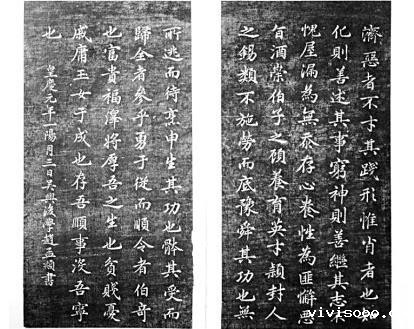 濟惡者不才其踐形惟肖者也知
化則善述其事窮神則善繼其志不
愧屋漏為無忝存心養性為匪懈惡
旨酒崇伯子之顧養育英才穎封人
之錫類不施勞而底豫舜其功也無
所逃而待烹申生其功也體其受而
歸全者參乎勇于從而順令者伯奇
也富貴福澤將厚吾之生也貧賤憂
戚庸玉女于成也存吾順事沒吾寧
也
皇慶元年一陽月三日吳興後學趙孟頫書